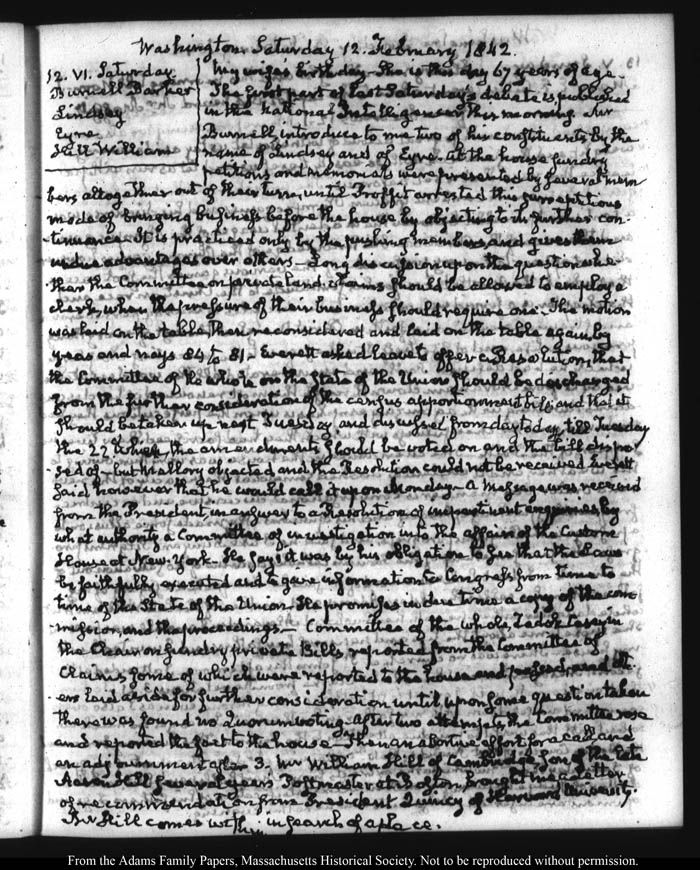 Washington Saturday 12. February 1842.
12. VI. Saturday.
Burnell Barker
Lindsey
Eyre
Hill William
My wife's birthday. She is this day 67 years of age.
The first part of last Saturday's debate is published
in the National Intelligencer this morning. Mr
Burnell, introduced to me two of his constituents by the
name of Lindsey and of Eyre. At the house sundry
petitions and memorials were presented by several mem
bers altogether out of their turn, until Proffit arrested this surreptitious
mode of bringing business before the house by objecting to its further con-
-tinuance. It is practiced only by the pushing members, and gives them
undue advantages over others. Long discussion upon the question whe
-ther the Committee on private land claims should be allowed to employ a
clerk, when the pressure of their business should require one. The motion
was laid on the table, then reconsidered and laid on the table again, by
yeas and nays 84 to 81. Everett asked leave to offer a Resolution, that
the Committee of the whole on the State of the Union should be discharged
from the further consideration of the census apportionment bill; and that it
should be taken up next Tuesday and discussed from day to day, till Tuesday
the 22d when the amendments should be voted on and the bill dispo-
sed of. but Mallory objected and the Resolution could not be received. Everett
said however that he would call it up on Monday. A Message was received
from the President in answer to a Resolution of impertinent enquiries, by
what authority a Committee of investigation into the affairs of the Custom
House at New-York. He says it was by his obligation to see that the Laws
be faithfully executed and to give information to Congress from time to
time of the State of the Union. He promises in due time a copy of the com
-mission, and the proceedings. Committee of the whole, in
the Chair on sundry private Bills, reported from the Committee of
Claims some of which were reported to the house and passed, and oth-
-ers laid aside for further consideration until upon some question taken
there was found no Quorum voting. After two attempts, the Committee rose
and reported the fact to the house. Then an abortive effort for a call and
an adjournment after 3. Mr William Hill of Cambridge, son of the late
Aaron Hill several years Postmaster at Boston, brought me a Letter
of recommendation from President Quincy of Harvard University.
Mr Hill comes within in search of a place.
From the Adams Family Papers, Massachusetts Historical Society. Not to be reproduced without permission.